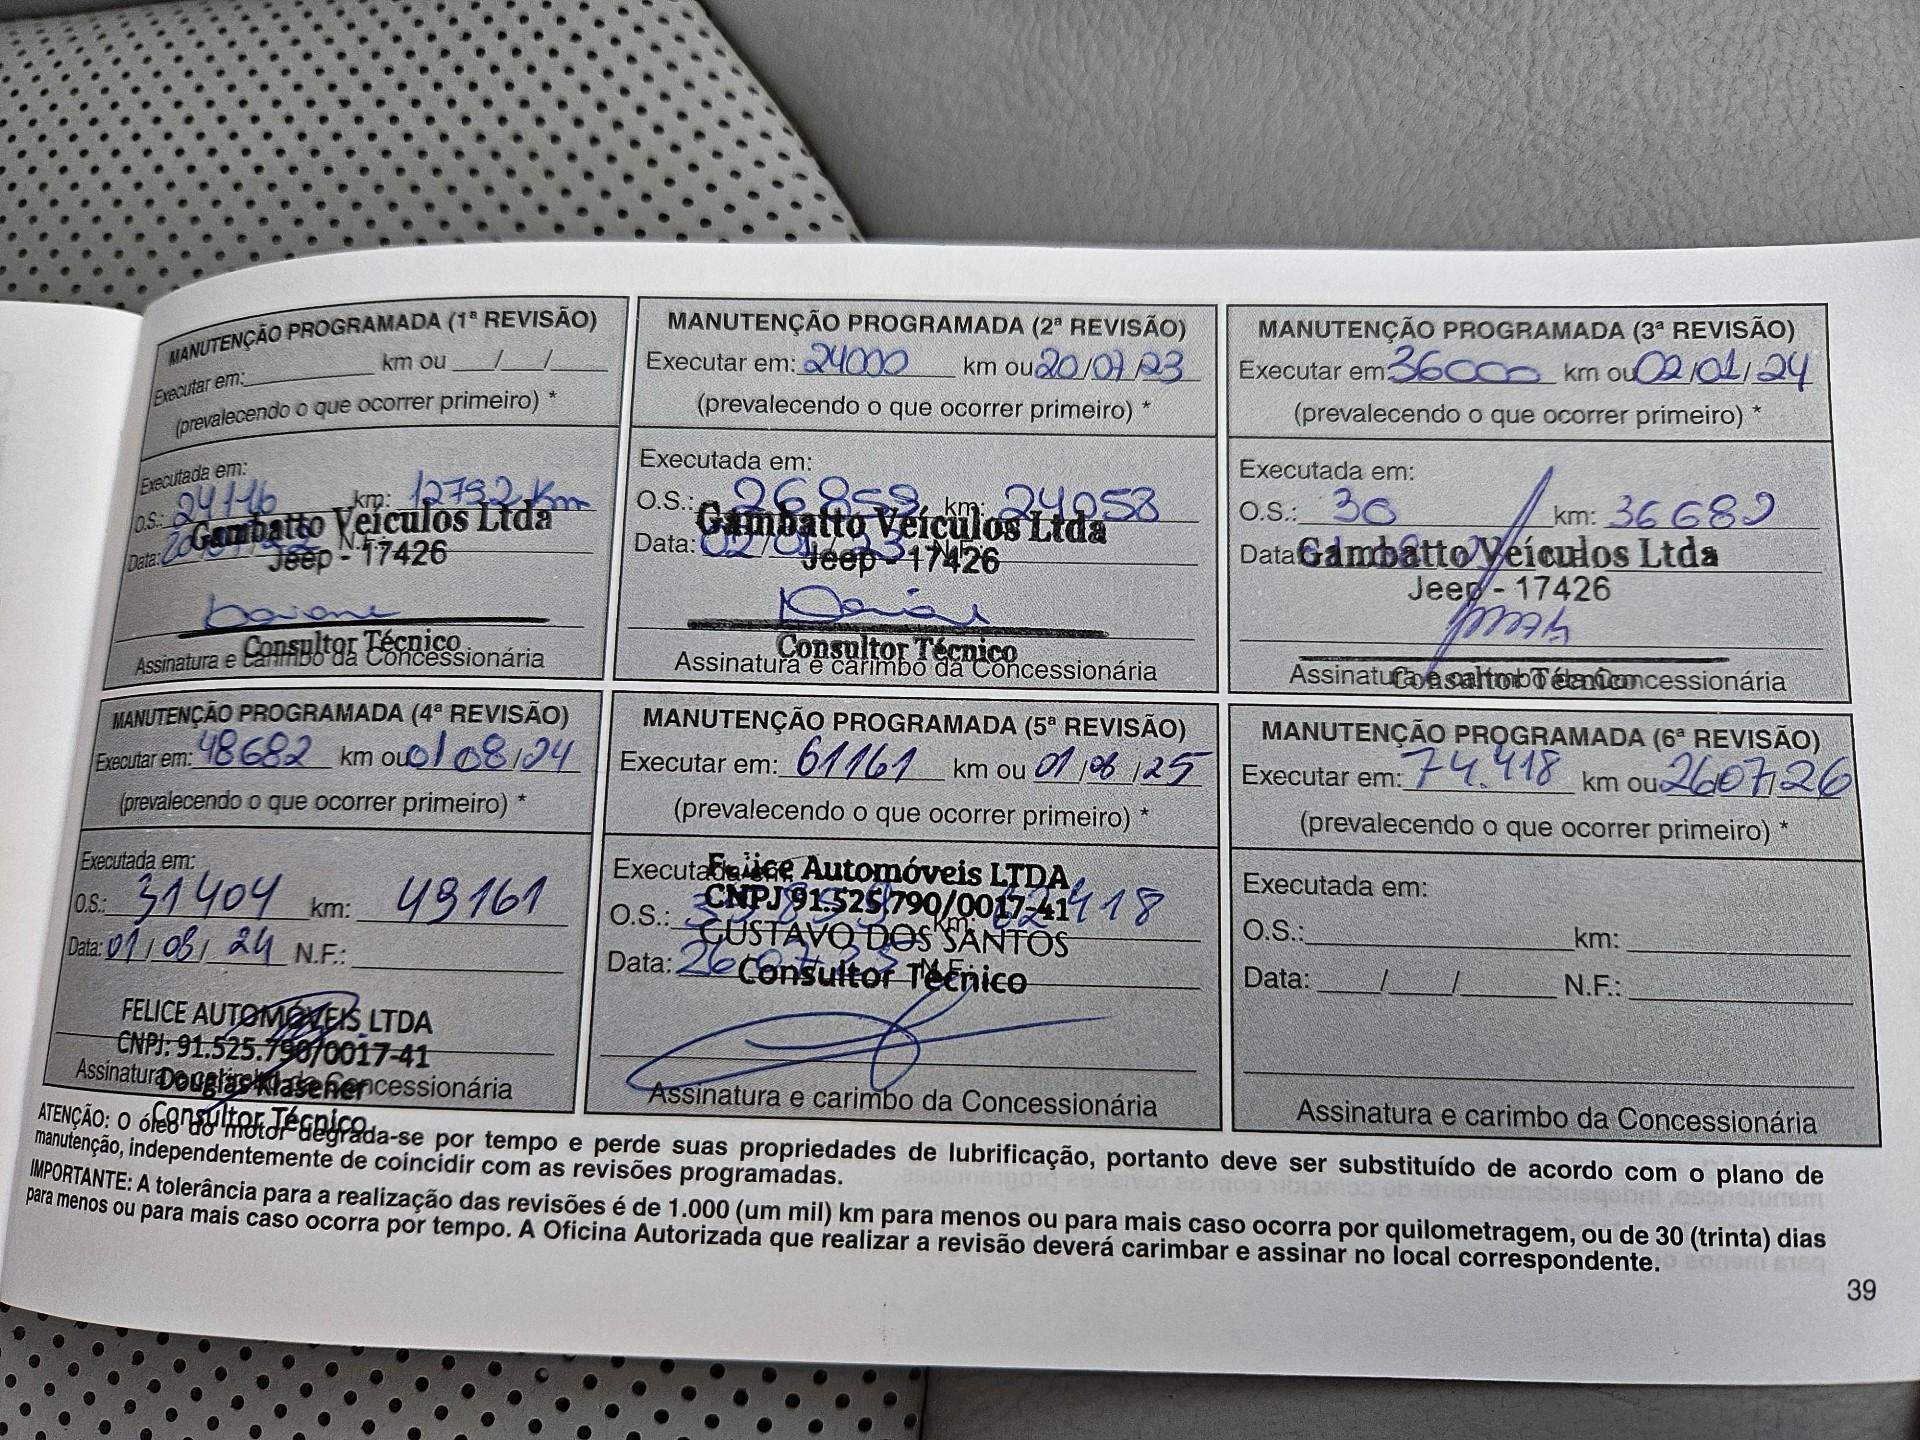 MANUTENÇÃO PROGRAMADA (1ª REVISÃO)
Executar em: km ou / /
(prevalecendo o que ocorrer primeiro) *
Executada em:
O.S.: 24116 km: 12792 Km
Data: N.F.
Gambatto Veículos Ltda
Jeep - 17426
Consultor Técnico
Assinatura e carimbo da Concessionária
MANUTENÇÃO PROGRAMADA (2ª REVISÃO)
Executar em: 24000 km ou 20/07/23
(prevalecendo o que ocorrer primeiro) *
Executada em:
O.S.: 26859 km: 24058
Data: 02/01 N.F.
Gambatto Veículos Ltda
Jeep - 17426
Consultor Técnico
Assinatura e carimbo da Concessionária
MANUTENÇÃO PROGRAMADA (3ª REVISÃO)
Executar em: 36000 km ou 02/01/24
(prevalecendo o que ocorrer primeiro) *
Executada em:
O.S.: 30 km: 36682
Data:
Gambatto Veículos Ltda
Jeep - 17426
Consultor Técnico
Assinatura e carimbo da Concessionária
MANUTENÇÃO PROGRAMADA (4ª REVISÃO)
Executar em: 48682 km ou 01/08/24
(prevalecendo o que ocorrer primeiro) *
Executada em:
O.S.: 31404 km: 49161
Data: 01/08/24 N.F.:
FELICE AUTOMÓVEIS LTDA
CNPJ: 91.525.790/0017-41
Douglas Klasener
Consultor Técnico
Assinatura e carimbo da Concessionária
MANUTENÇÃO PROGRAMADA (5ª REVISÃO)
Executar em: 61161 km ou 01/08/25
(prevalecendo o que ocorrer primeiro) *
Executada em:
O.S.: km: 62418
Data: 26 N.F.:
Felice Automóveis LTDA
CNPJ 91.525.790/0017-41
GUSTAVO DOS SANTOS
Consultor Técnico
Assinatura e carimbo da Concessionária
MANUTENÇÃO PROGRAMADA (6ª REVISÃO)
Executar em: 74.418 km ou 26/07/26
(prevalecendo o que ocorrer primeiro) *
Executada em:
O.S.: km:
Data: / / N.F.:
Assinatura e carimbo da Concessionária
ATENÇÃO: O óleo do motor degrada-se por tempo e perde suas propriedades de lubrificação, portanto deve ser substituído de acordo com o plano de
manutenção, independentemente de coincidir com as revisões programadas.
IMPORTANTE: A tolerância para a realização das revisões é de 1.000 (um mil) km para menos ou para mais caso ocorra por quilometragem, ou de 30 (trinta) dias
para menos ou para mais caso ocorra por tempo. A Oficina Autorizada que realizar a revisão deverá carimbar e assinar no local correspondente.
39